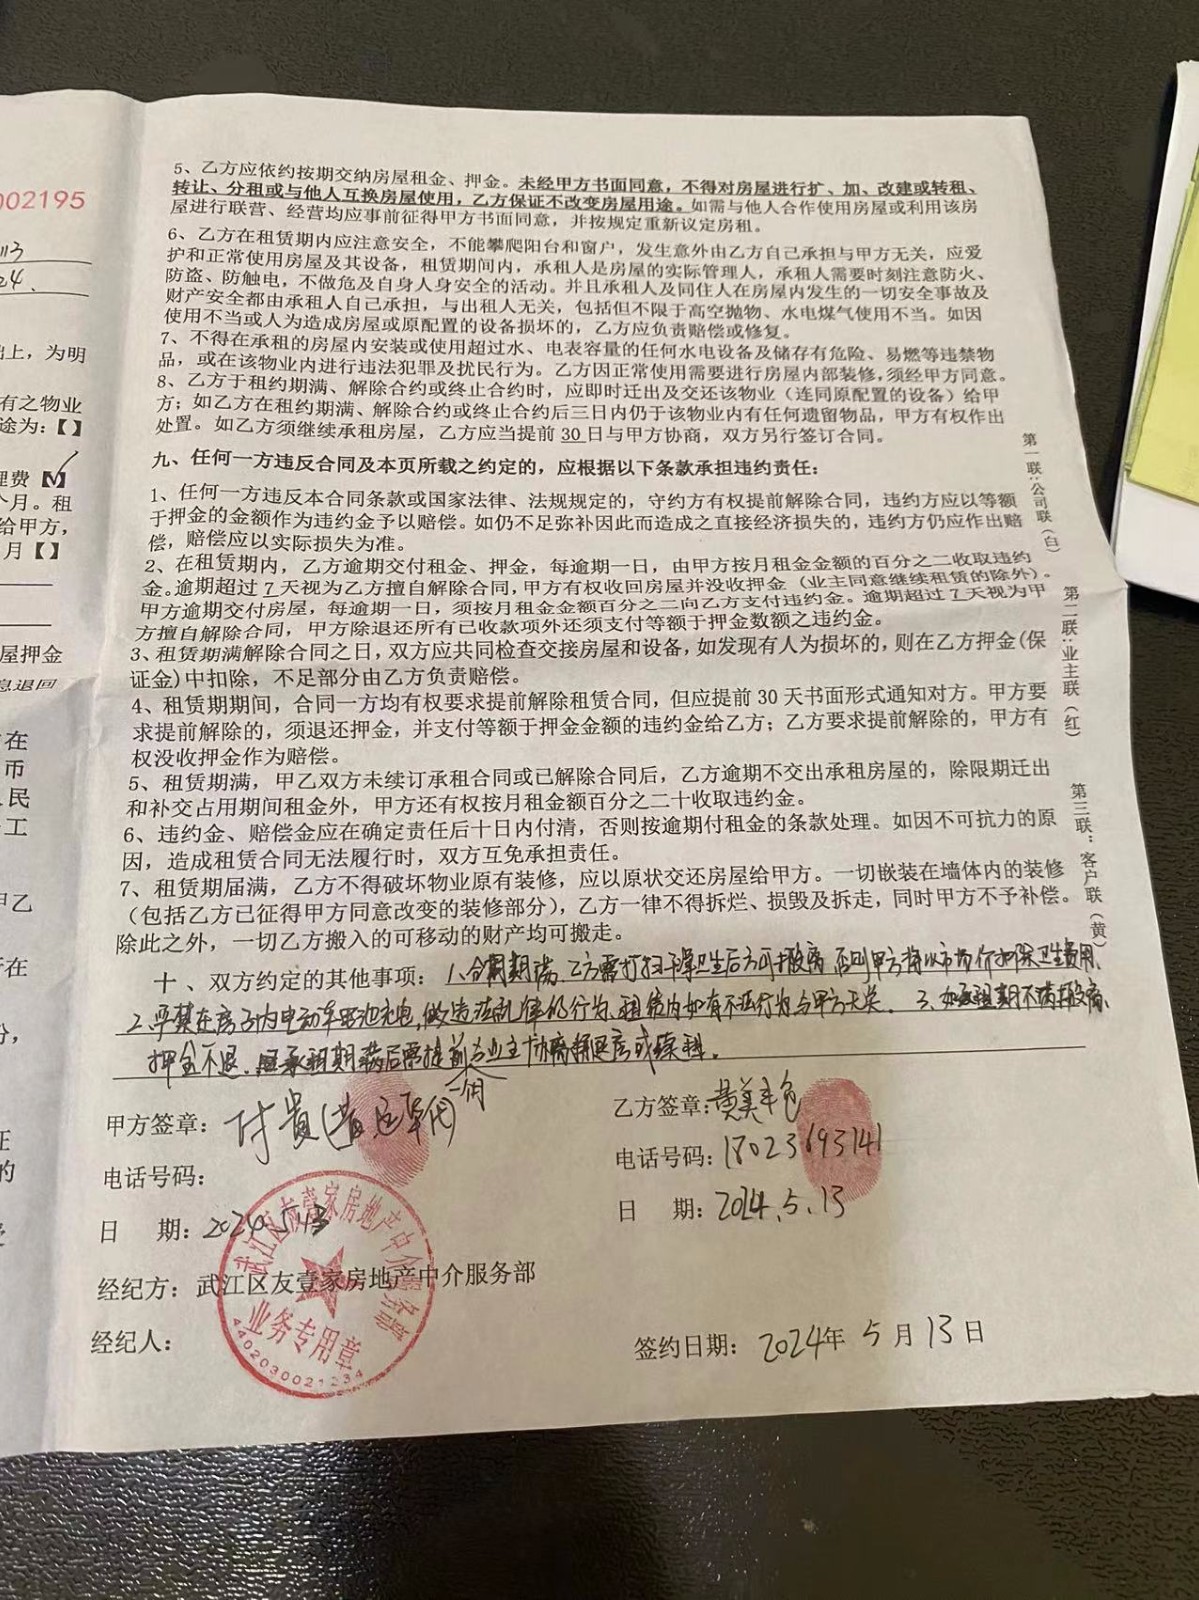 002195
113
24.
上，为明
有之物业
途为：【 】
理费【√】
个月。租
给甲方，
月【 】
屋押金
息退回
在
币
民
工
甲乙
在
分，
证
的
5、乙方应依约按期交纳房屋租金、押金。未经甲方书面同意，不得对房屋进行扩、加、改建或转租、
转让、分租或与他人互换房屋使用，乙方保证不改变房屋用途。如需与他人合作使用房屋或利用该房
屋进行联营、经营均应事前征得甲方书面同意，并按规定重新议定房租。
6、乙方在租赁期内应注意安全，不能攀爬阳台和窗户，发生意外由乙方自己承担与甲方无关，应爱
护和正常使用房屋及其设备，租赁期间内，承租人是房屋的实际管理人，承租人需要时刻注意防火、
防盗、防触电，不做危及自身人身安全的活动。并且承租人及同住人在房屋内发生的一切安全事故及
财产安全都由承租人自己承担，与出租人无关，包括但不限于高空抛物、水电煤气使用不当。如因
使用不当或人为造成房屋或原配置的设备损坏的，乙方应负责赔偿或修复。
7、不得在承租的房屋内安装或使用超过水、电表容量的任何水电设备及储存有危险、易燃等违禁物
品，或在该物业内进行违法犯罪及扰民行为。乙方因正常使用需要进行房屋内部装修，须经甲方同意。
8、乙方于租约期满、解除合约或终止合约时，应即时迁出及交还该物业（连同原配置的设备）给甲
方；如乙方在租约期满、解除合约或终止合约后三日内仍于该物业内有任何遗留物品，甲方有权作出
处置。如乙方须继续承租房屋，乙方应当提前30日与甲方协商，双方另行签订合同。
九、任何一方违反合同及本页所载之约定的，应根据以下条款承担违约责任：
1、任何一方违反本合同条款或国家法律、法规规定的，守约方有权提前解除合同，违约方应以等额
于押金的金额作为违约金予以赔偿。如仍不足弥补因此而造成之直接经济损失的，违约方仍应作出赔
偿，赔偿应以实际损失为准。
2、在租赁期内，乙方逾期交付租金、押金，每逾期一日，由甲方按月租金金额的百分之二收取违约
金。逾期超过7天视为乙方擅自解除合同，甲方有权收回房屋并没收押金（业主同意继续租赁的除外）。
甲方逾期交付房屋，每逾期一日，须按月租金金额百分之二向乙方支付违约金。逾期超过7天视为甲
方擅自解除合同，甲方除退还所有已收款项外还须支付等额于押金数额之违约金。
3、租赁期满解除合同之日，双方应共同检查交接房屋和设备，如发现有人为损坏的，则在乙方押金(保
证金)中扣除，不足部分由乙方负责赔偿。
4、租赁期期间，合同一方均有权要求提前解除租赁合同，但应提前30天书面形式通知对方。甲方要
求提前解除的，须退还押金，并支付等额于押金金额的违约金给乙方；乙方要求提前解除的，甲方有
权没收押金作为赔偿。
5、租赁期满，甲乙双方未续订承租合同或已解除合同后，乙方逾期不交出承租房屋的，除限期迁出
和补交占用期间租金外，甲方还有权按月租金额百分之二十收取违约金。
6、违约金、赔偿金应在确定责任后十日内付清，否则按逾期付租金的条款处理。如因不可抗力的原
因，造成租赁合同无法履行时，双方互免承担责任。
7、租赁期届满，乙方不得破坏物业原有装修，应以原状交还房屋给甲方。一切嵌装在墙体内的装修
（包括乙方已征得甲方同意改变的装修部分），乙方一律不得拆烂、损毁及拆走，同时甲方不予补偿。
除此之外，一切乙方搬入的可移动的财产均可搬走。
十、双方约定的其他事项：1、合同期满，乙方需打扫干净卫生后方可搬离，否则甲方将以市场价扣除卫生费用、
2、严禁在房子内电动车电池充电，做违法乱纪的行为，租赁内如有不法行为与甲方无关。3、如租期不满搬离，
押金不退，承租期满后需提前一个月与业主协商退房或续租。
甲方签章：付贵
乙方签章：黄美
电话号码：
电话号码：18023693141
日 期：2024.5.13
日 期：2024.5.13
经纪方：武江区友壹家房地产中介服务部
经纪人：
签约日期：2024年5月13日
武江区友壹家房地产中介服务部
业务专用章
4402030021234
第一联：公司联（白）
第二联：业主联（红）
第三联：客户联（黄）